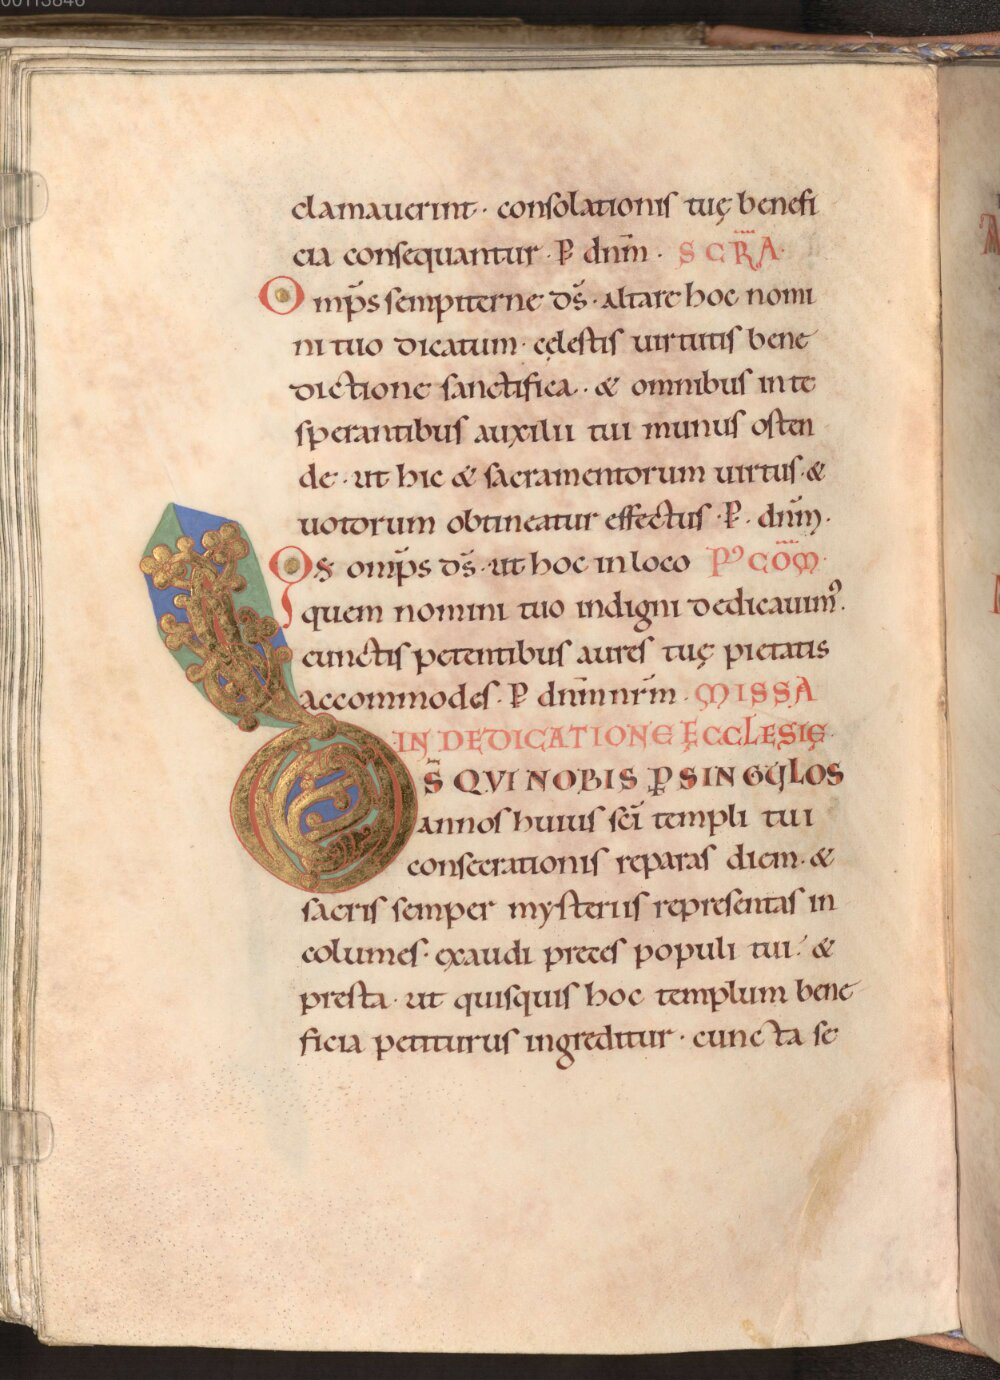 clamauerint · consolationis tuę benefi
cia consequantur · P dnm̄ · SCRA
Omp̄s sempiterne ds̄ · altare hoc nomi
ni tuo dicatum · cęlestis uirtutis bene
dictione sanctifica · & omnibus in te
sperantibus auxilii tui munus osten
de · ut hic & sacramentorum uirtus · &
uotorum obtineatur effectus · P · dnm̄ ·
Ds omīps ds̄ · ut hoc in loco P' CŌM ·
quem nomini tuo indigni dedicauim9 .
cunctis petentibus aures tuę pietatis
accommodes · P dnm̄ nrm̄ · MISSA
IN DEDICATIONE ĘCCLESIĘ
DS̄ QVI NOBIS P SINGVLOS
annos huius sc̄i templi tui
consecrationis reparas diem · &
sacris semper mysteriis representas in
columes · exaudi preces populi tui · &
presta · ut quisquis hoc templum bene
ficia petiturus ingreditur · cuncta se